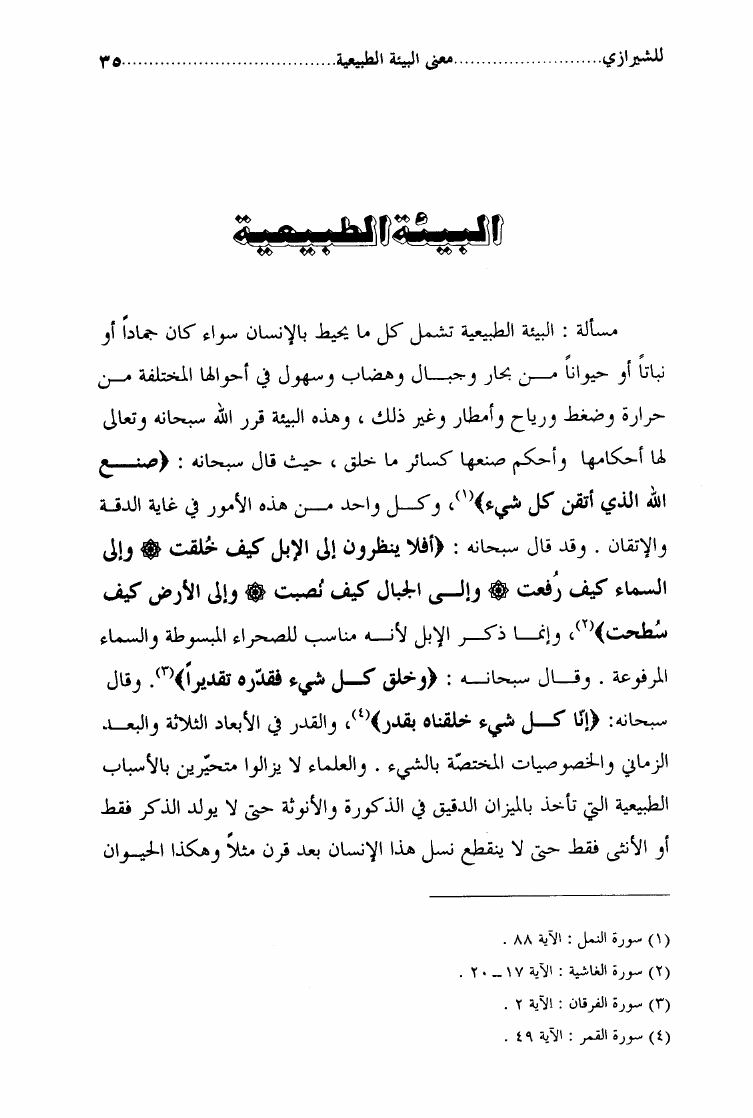 للشيرازي............................معنى البيئة الطبيعية........................................٣٥
البيئة الطبيعية
مسألة : البيئة الطبيعية تشمل كل ما يحيط بالإنسان سواء كان جماداً أو
نباتاً أو حيواناً من بحار وجبال وهضاب وسهول في أحوالها المختلفة من
حرارة وضغط ورياح وأمطار وغير ذلك ، وهذه البيئة قرر الله سبحانه وتعالى
لها أحكامها وأحكم صنعها كسائر ما خلق ، حيث قال سبحانه : ﴿صنع
الله الذي أتقن كل شيء﴾(١)، وكل واحد من هذه الأمور في غاية الدقة
والإتقان . وقد قال سبحانه : ﴿أفلا ينظرون إلى الإبل كيف خُلقت ۞ وإلى
السماء كيف رُفعت ۞ وإلى الجبال كيف نُصبت ۞ وإلى الأرض كيف
سُطحت﴾(٢)، وإنما ذكر الإبل لأنه مناسب للصحراء المبسوطة والسماء
المرفوعة . وقال سبحانه : ﴿وخلق كل شيء فقدّره تقديراً﴾(٣). وقال
سبحانه: ﴿إنّا كل شيء خلقناه بقدر﴾(٤)، والقدر في الأبعاد الثلاثة والبعد
الزماني والخصوصيات المختصّة بالشيء . والعلماء لا يزالوا متحيّرين بالأسباب
الطبيعية التي تأخذ بالميزان الدقيق في الذكورة والأنوثة حتى لا يولد الذكر فقط
أو الأنثى فقط حتى لا ينقطع نسل هذا الإنسان بعد قرن مثلاً وهكذا الحيوان
(١) سورة النمل : الآية ٨٨ .
(٢) سورة الغاشية : الآية ١٧ ــ ٢٠ .
(٣) سورة الفرقان : الآية ٢ .
(٤) سورة القمر : الآية ٤٩ .